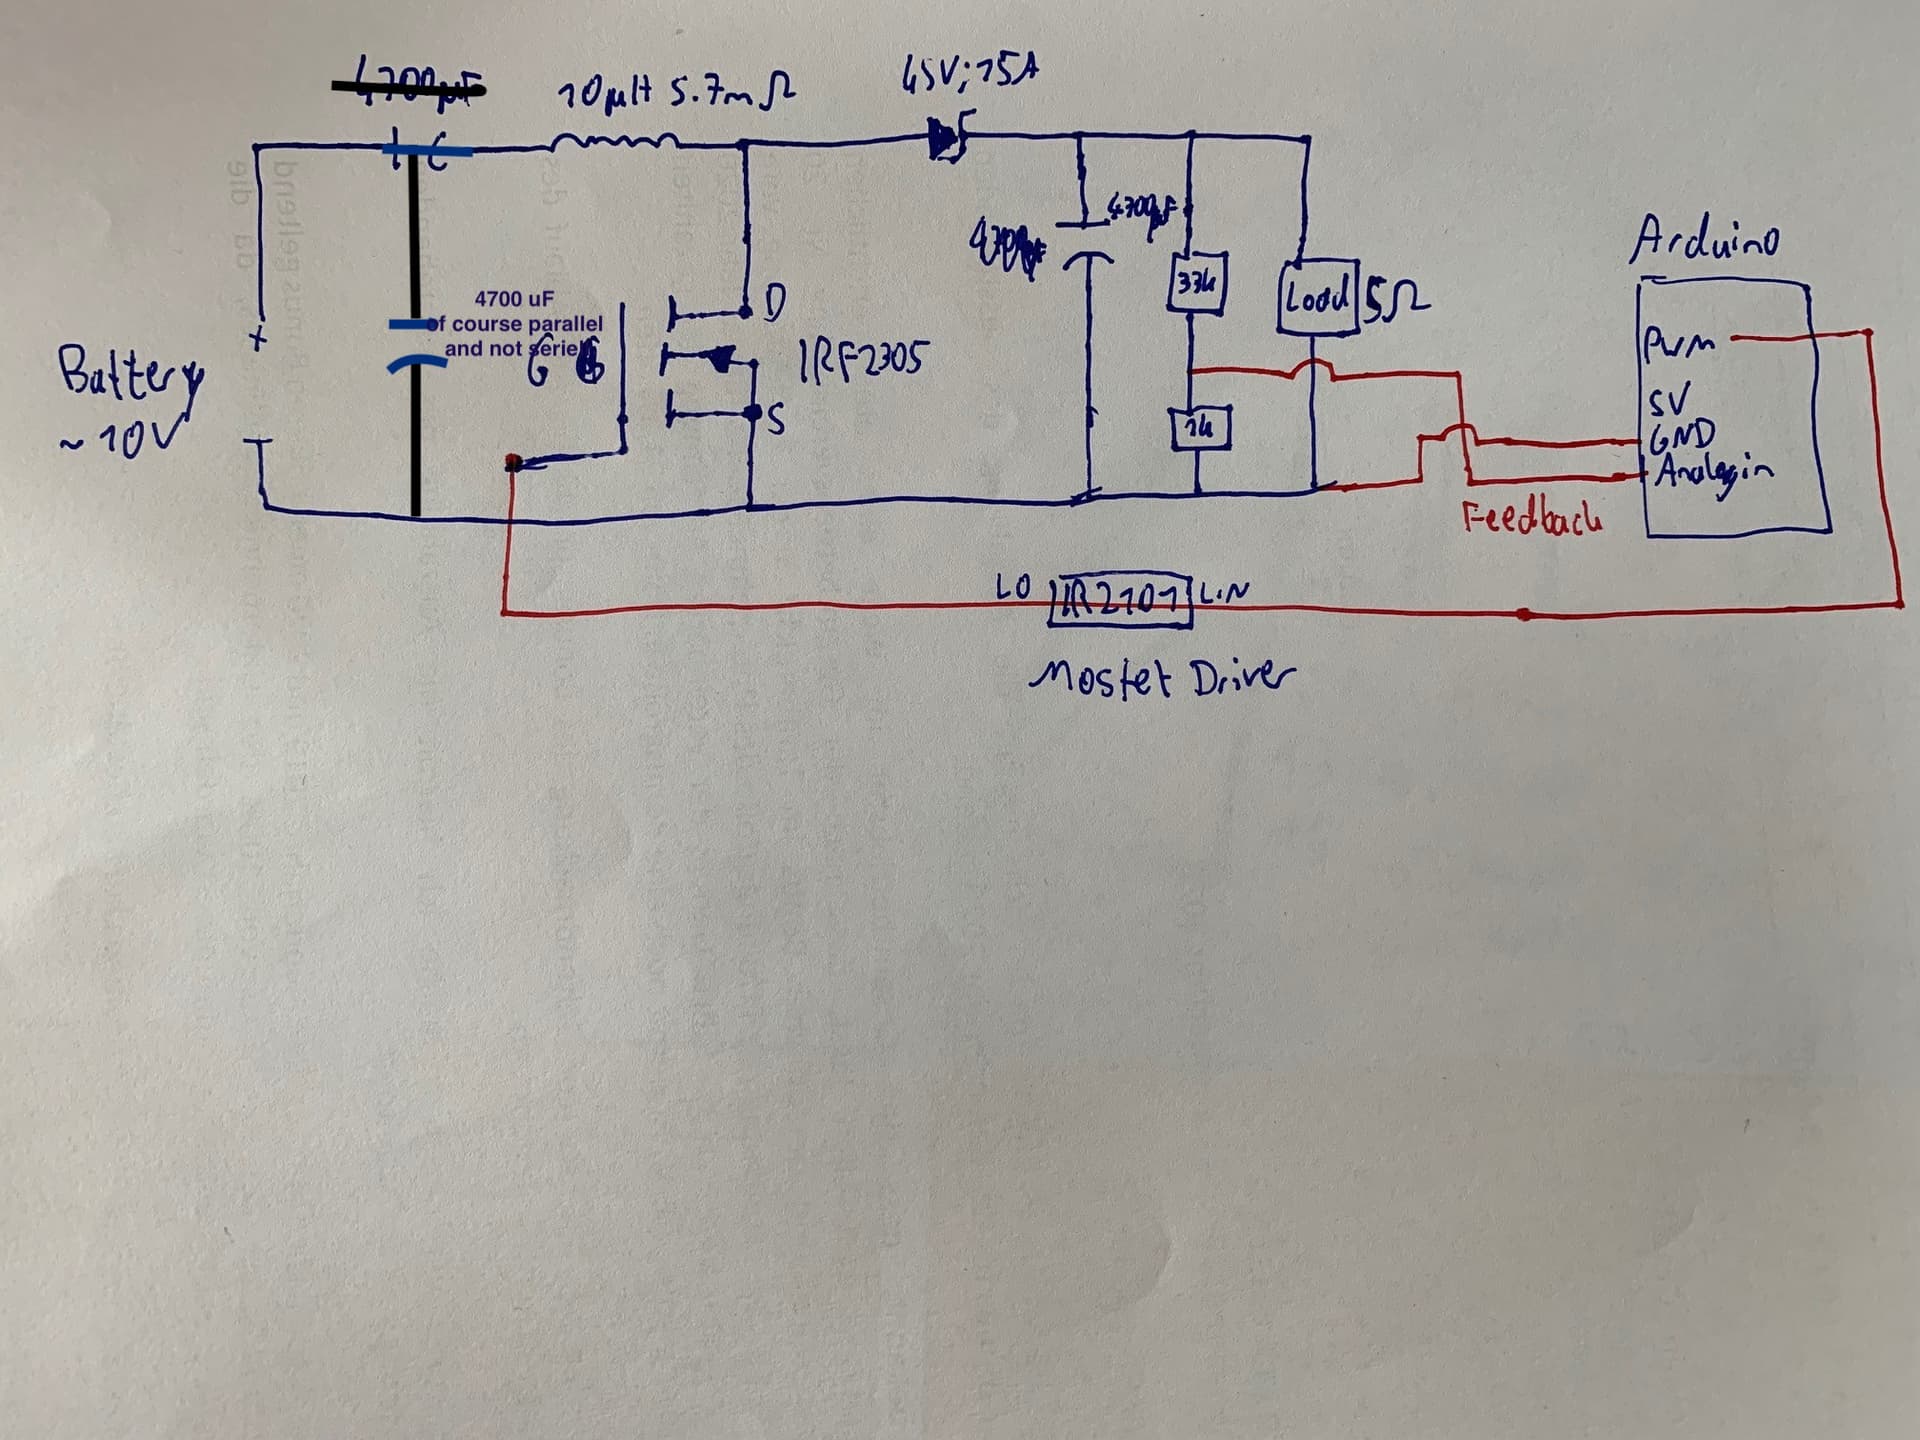 4700µF
10µH 5.7mΩ
45V; 15A
4700µF
4700µF
Arduino
33k
Load 5Ω
4700 uF
of course parallel
and not seriell
D
G
+
Battery
~ 10V
IRF2305
S
1k
PWM
5V
GND
Analog in
Feedback
LO IR2101 LiN
Mosfet Driver